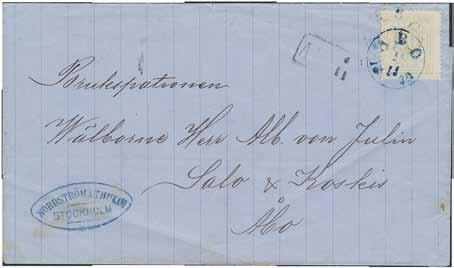 Brukspatronen
Wälborne Herr Alb. von Julin
Salo & Koskis
Åbo
NORDSTRÖM & THULIN
STOCKHOLM